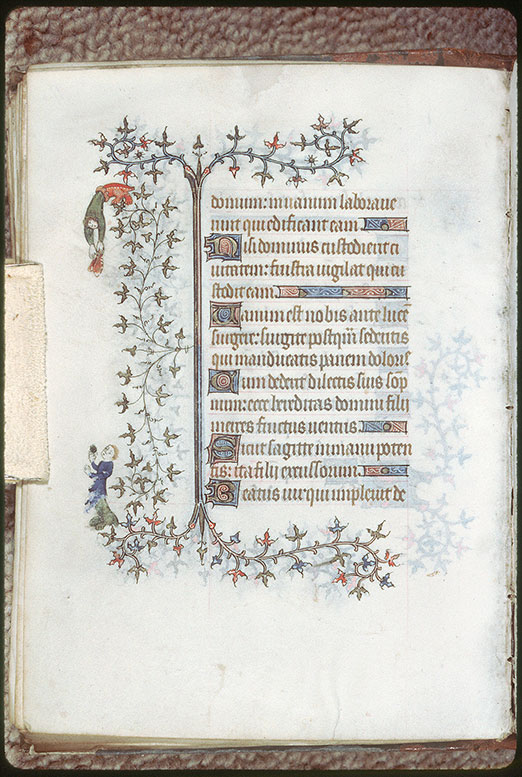 domum: in uanum laboraue
runt qui edificant eam
Nisi dominus custodierit ci
uitatem: frustra uigilat qui cu
stodit eam
Uanum est nobis ante lucem
surgere: surgite postquam sederitis
qui manducatis panem doloris
Cum dederit dilectis suis som
num: ecce hereditas domini filij
merces fructus uentris
Sicut sagitte in manu poten
tis: ita filij excussorum
Beatus uir qui impleuit de